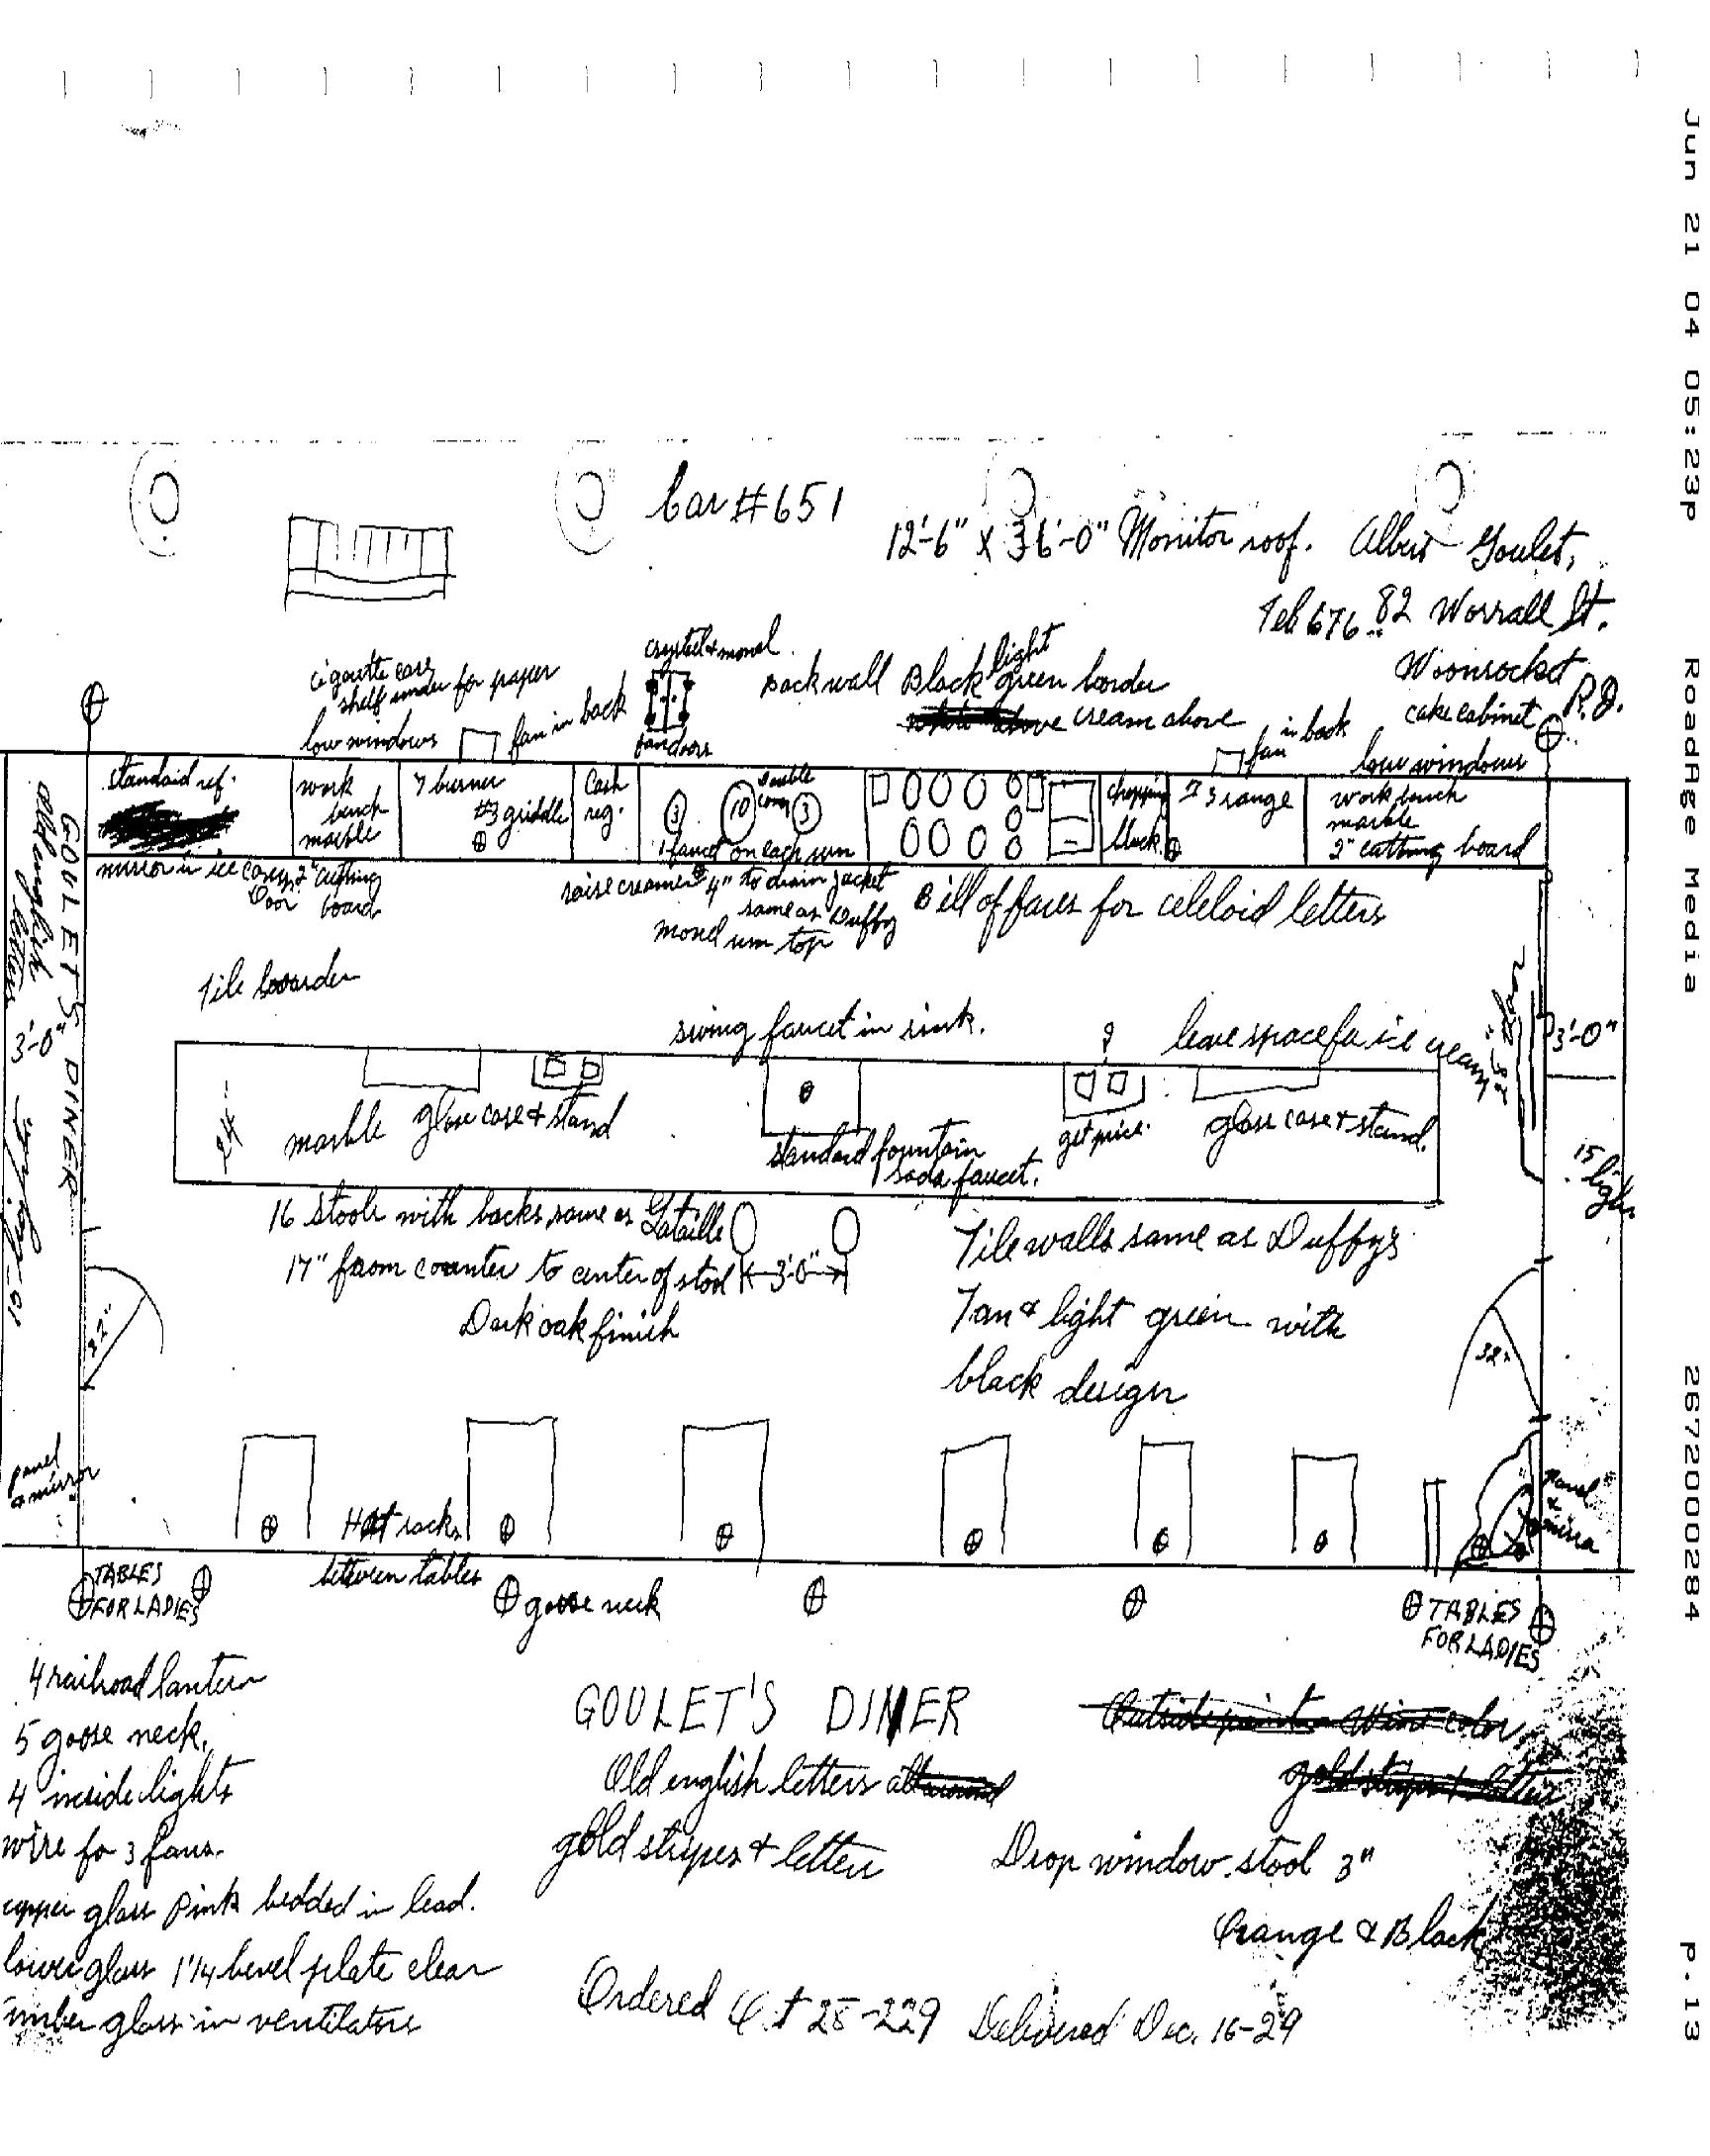 Jun 21 04 05:23p RoadAge Media 2672000284 p.13
Car #651
12'-6" X 36'-0" Monitor roof. Albert Goulet,
Tel 676 82 Worrall St.
Woonsocket
R.I.
cigarette case
shelf under for paper
low windows
fan in back
crystal & monel
pan doors
Back wall Black light green border
cream above
fan in back
cake cabinet
low windows
standard ref.
work bench marble
7 burner
#3 griddle
Cash reg.
3
10
3
double comp
1 faucet on each urn
chopping block
#3 range
work bench
marble
2" cutting board
mirror in ice cases
Door
2" cutting board
raise creamer 4" to drain jacket
same as Duffy
monel urn top
Bill of fares for celeloid letters
GOULETS DINER
old english letters
3'-0"
Tile boarder
swing faucet in sink.
leave space for ice cream
3'-0"
marble
glass case & stand
standard fountain
soda faucet.
get price.
glass case & stand.
15 lights
16 stools with backs same as Lataille
17" from counter to center of stool
3'-0"
Dark oak finish
Tile walls same as Duffys
Tan & light green with
black design
32"
32"
panel & mirror
Hat racks
between tables
panel & mirror
TABLES
FOR LADIES
goose neck
TABLES
FOR LADIES
4 railroad lantern
5 goose neck.
4 inside lights
wire fo 3 fans.
upper glass Pink bedded in lead.
lower glass 1 1/4 bevel plate clear
amber glass in ventilators
GOULET'S DINER
Old english letters all around
gold stripes & letters
Outside paint Wine color
gold stripes & letters
Drop window stool 3"
Orange & Black
Ordered Oct 28-229 Delivered Dec. 16-29